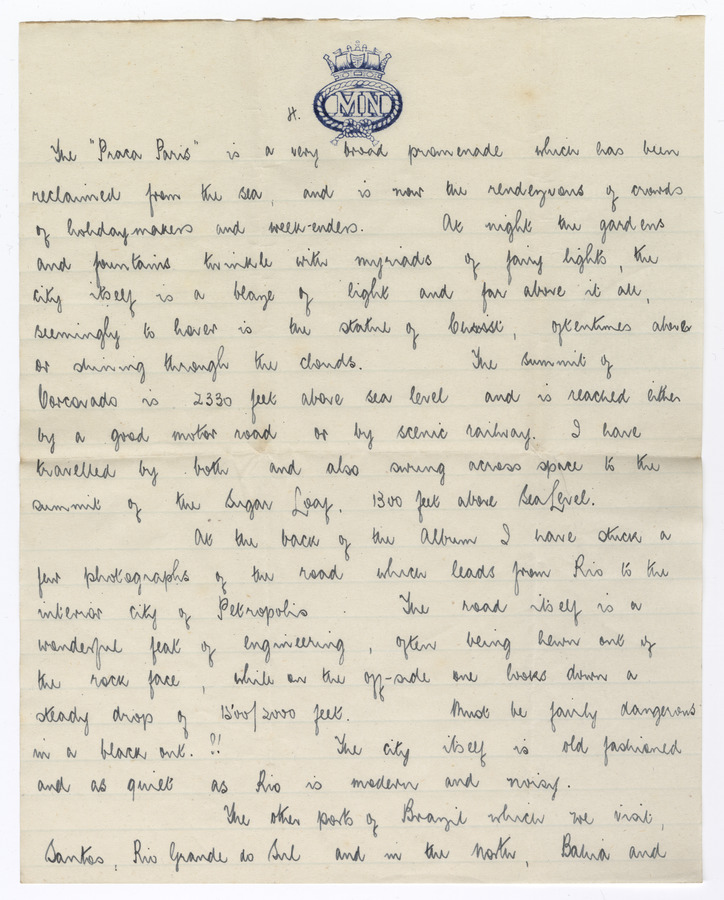 MN
4.
The "Praca Paris" is a very broad promenade which has been
reclaimed from the sea, and is now the rendezvous of crowds
of holidaymakers and week-enders. At night the gardens
and fountains twinkle with myriads of fairy lights, the
city itself is a blaze of light and far above it all,
seemingly to hover is the statue of Christ, oftentimes above
or shining through the clouds. The summit of
Corcovado is 2330 feet above sea level and is reached either
by a good motor road or by scenic railway. I have
travelled by both and also swung across space to the
summit of the Sugar Loaf, 1300 feet above Sea Level.
At the back of the Album I have stuck a
few photographs of the road which leads from Rio to the
interior city of Petropolis. The road itself is a
wonderful feat of engineering, often being hewn out of
the rock face, while on the off-side one looks down a
steady drop of 1500/2000 feet. Must be fairly dangerous
in a black out. ?! The city itself is old fashioned
and as quiet as Rio is modern and noisy.
The other ports of Brazil which we visit,
Santos, Rio Grande do Sul and in the North, Bahia and